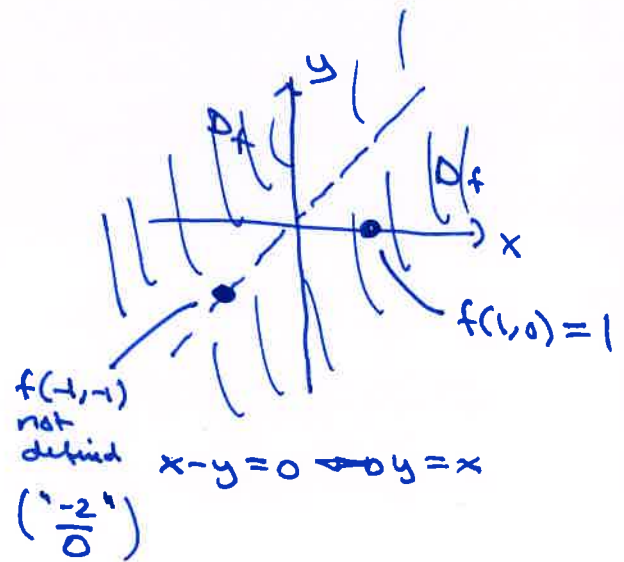 y
D_f
D_f
x
f(1,0) = 1
f(-1,-1)
not
defined
x-y=0 ⟺ y=x
("-2"/0)